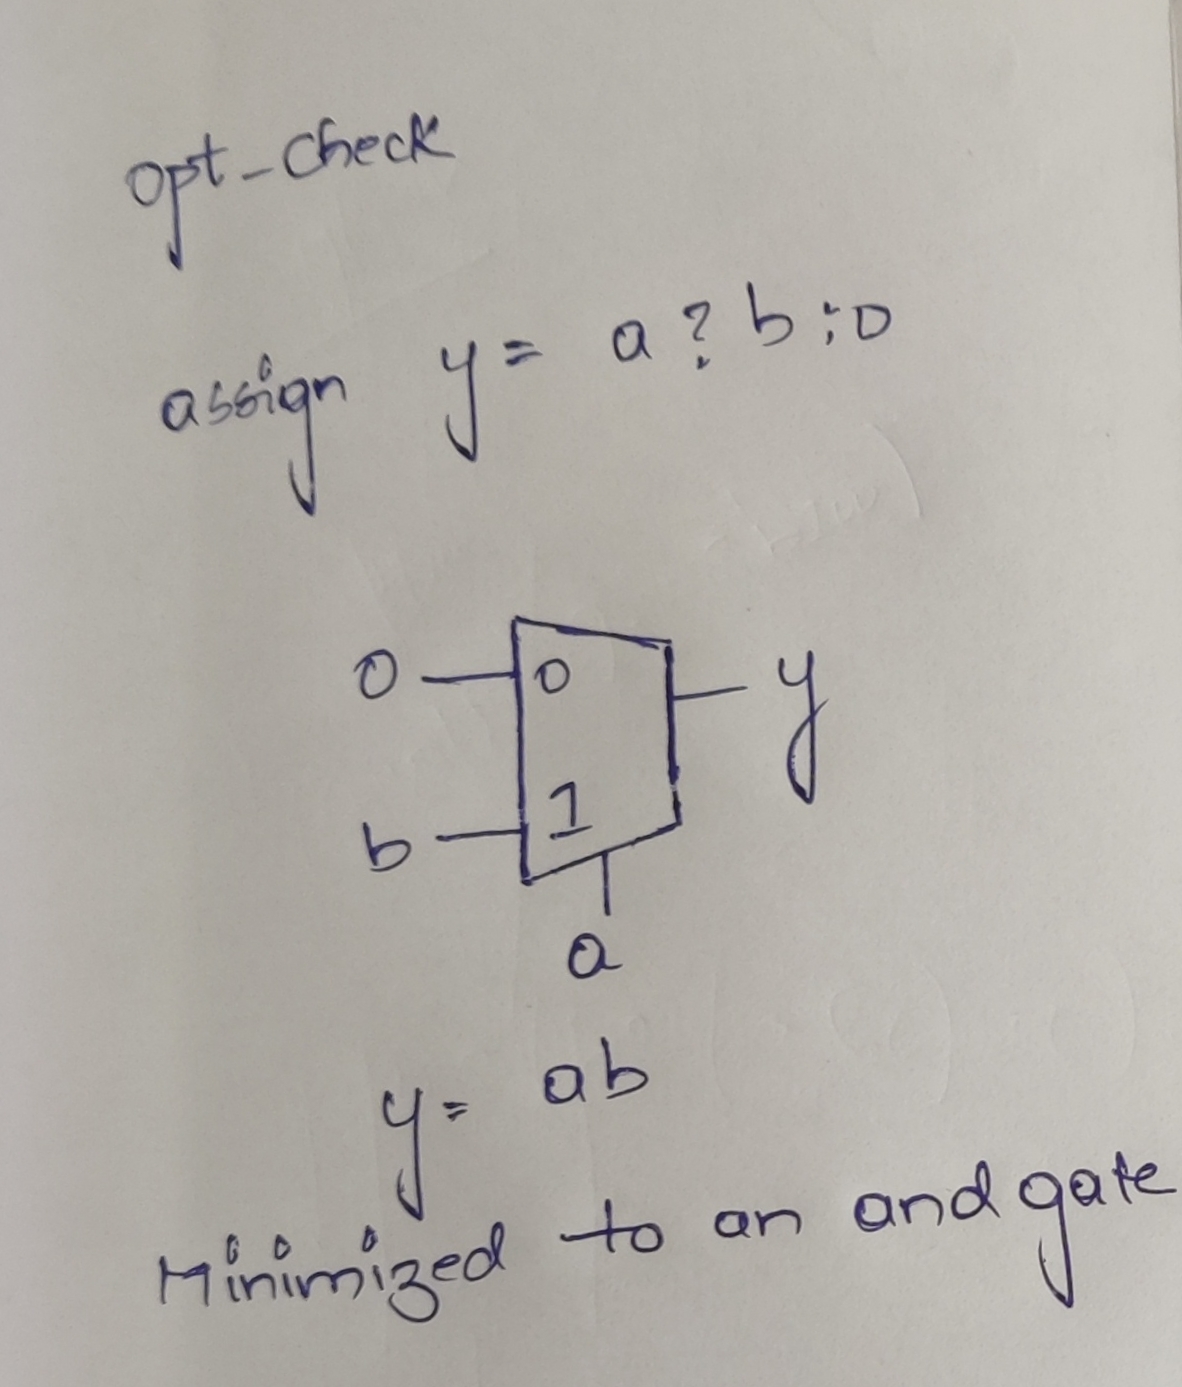 opt-check
assign y = a ? b : 0
0 0 y
b 1
a
y = ab
Minimized to an and gate